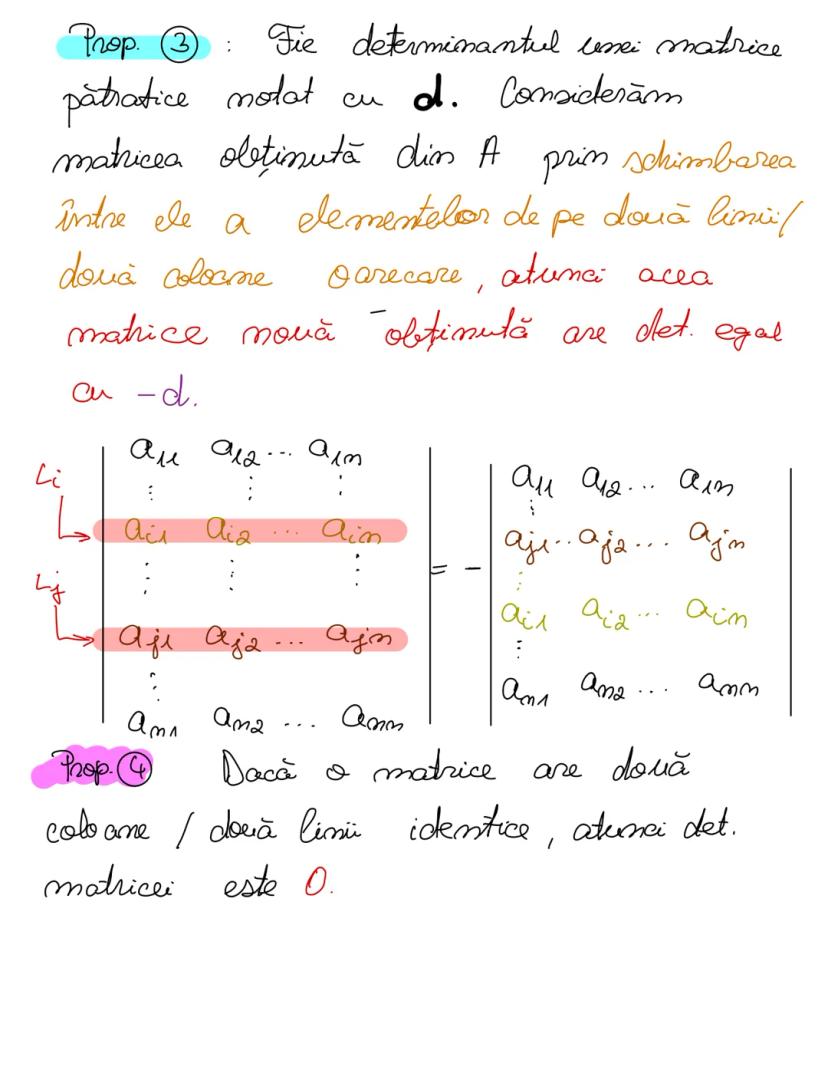 Prop. ③ : Fie determinantul unei matrice
pătratice notat cu d. Considerăm
matricea obținută din A prin schimbarea
între ele a elementelor de pe două linii/
două coloane oarecare, atunci acea
matrice nouă obținută are det. egal
cu -d.
a₁₁ a₁₂ ... a₁ₙ
⋮ ⋮ ⋮
Li → aᵢ₁ aᵢ₂ ... aᵢₙ
⋮ ⋮ ⋮
Lj → aⱼ₁ aⱼ₂ ... aⱼₙ
⋮
aₙ₁ aₙ₂ ... aₙₙ
= -
a₁₁ a₁₂ ... a₁ₙ
⋮
aⱼ₁ .. aⱼ₂ ... aⱼₙ
⋮
aᵢ₁ aᵢ₂ ... aᵢₙ
⋮
aₙ₁ aₙ₂ ... aₙₙ
Prop. ④ Dacă o matrice are două
coloane / două linii identice, atunci det.
matricei este 0.